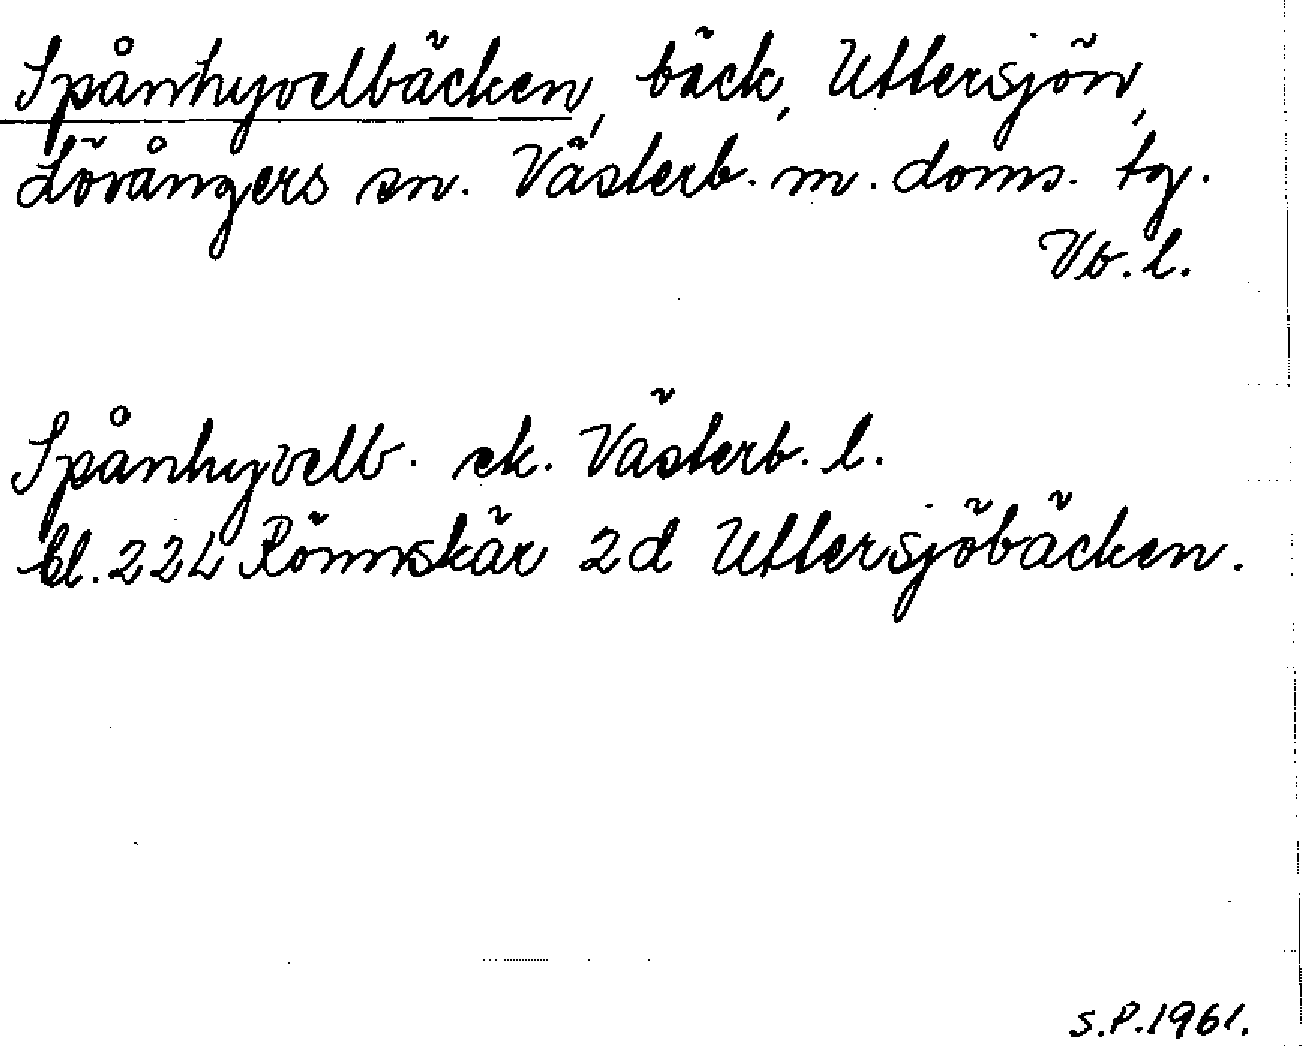 Spånhyvelbäcken, bäck, Uttersjön,
Lövångers sn. Västerb. m. doms. tg.
Vb. l.
Spånhyvelb. ek. Västerb. l.
bl. 22L Rönnskär 2d Uttersjöbäcken.
S.P.1961.